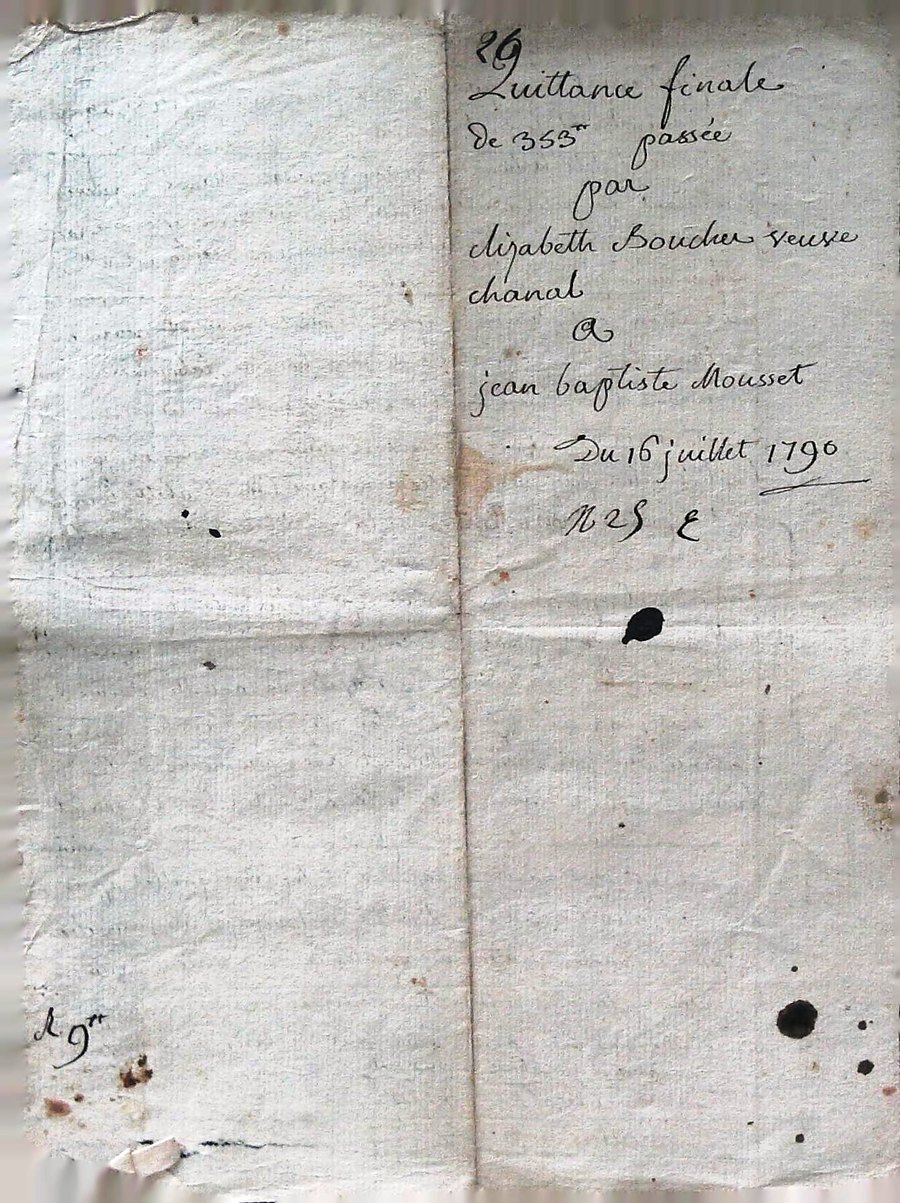 26
Quittance finale
de 353tt passée
par
elizabeth Boucher veuve
chanal
a
jean baptiste Mousset
Du 16 juillet 1790
N 25 E
R 9tt